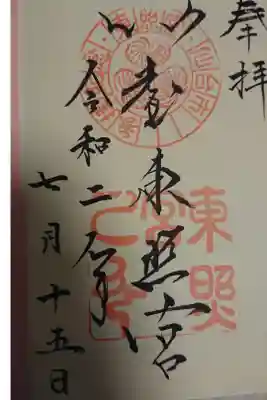 奉拝
仙臺東照宮
令和二年
七月十五日
東照